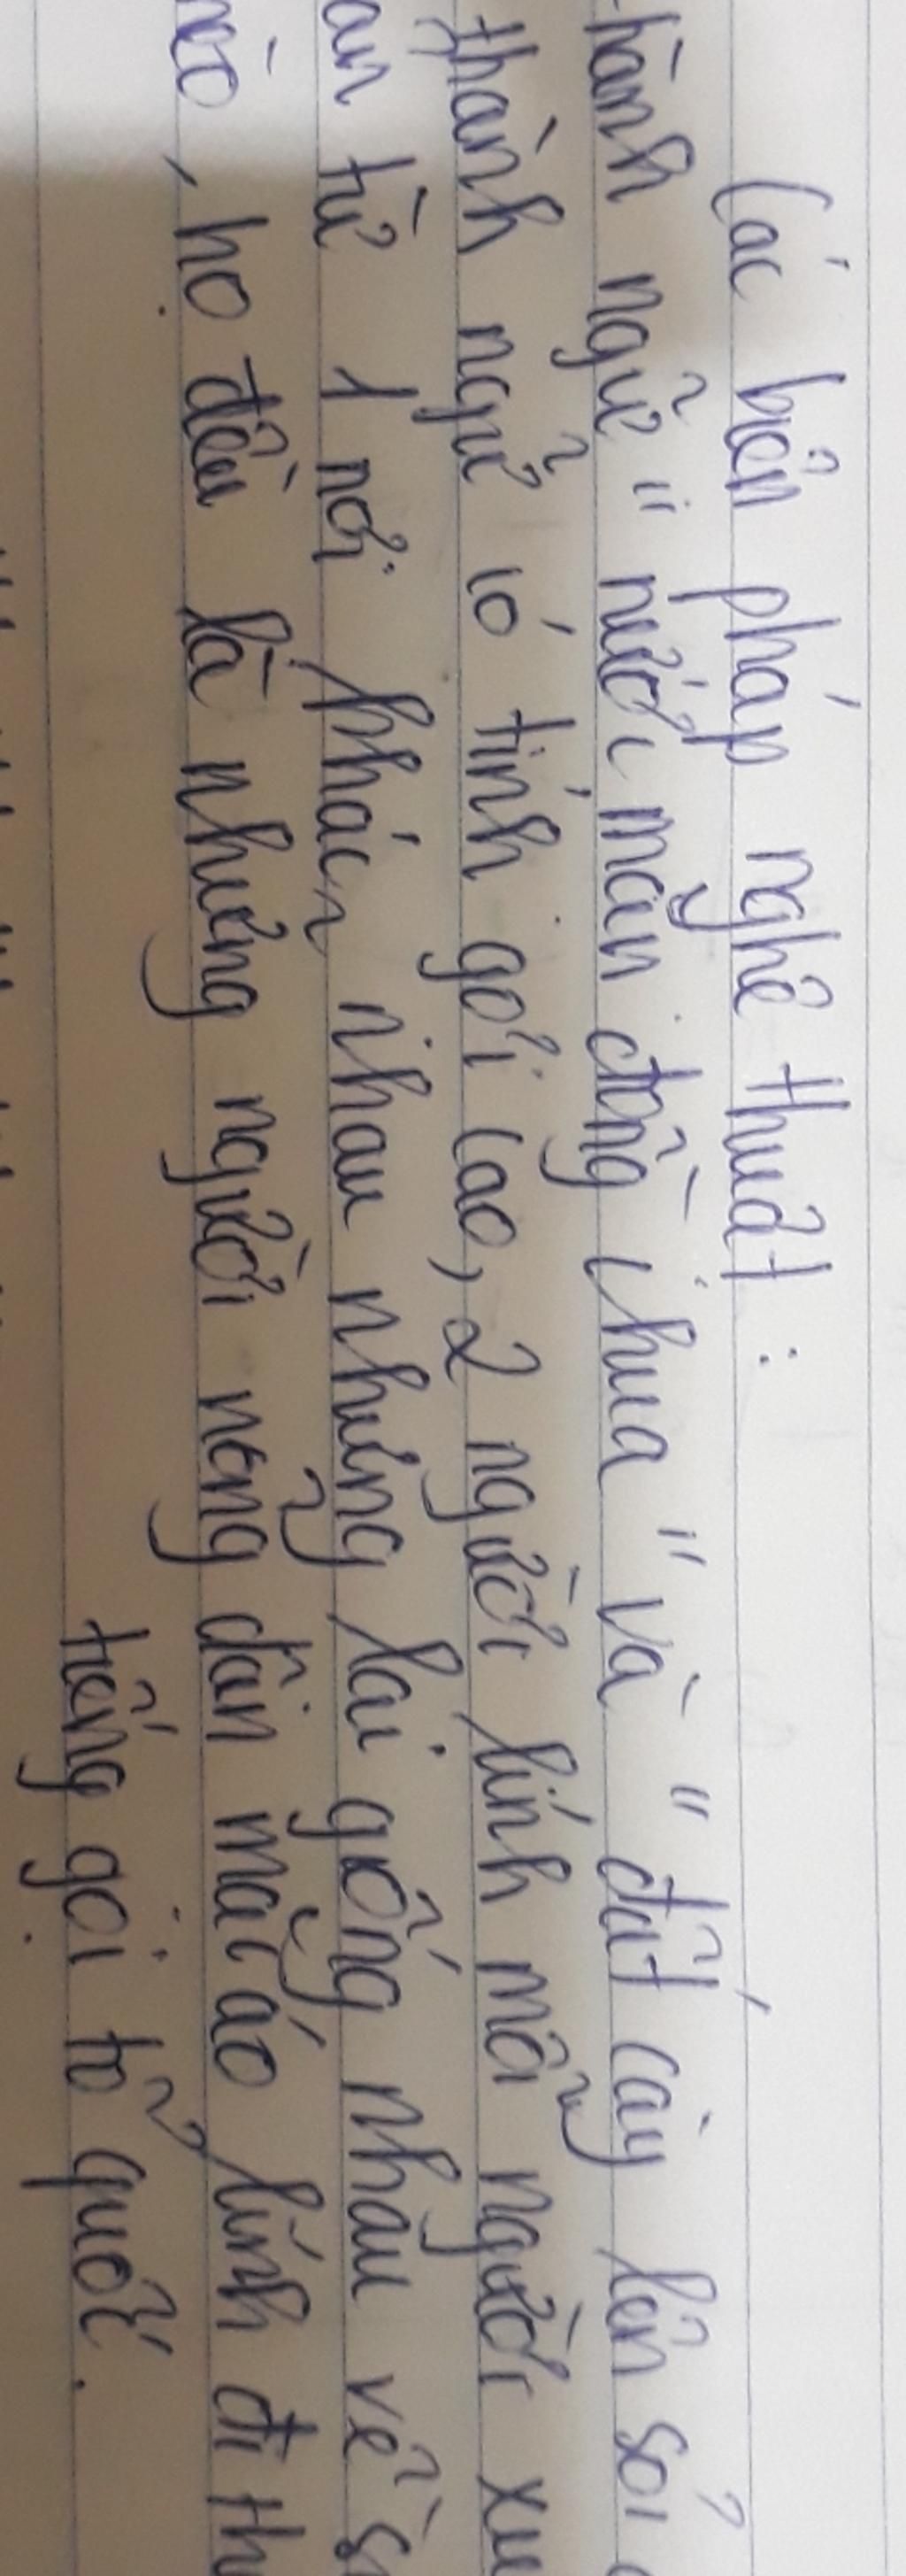 Các biện pháp nghệ thuật:
thành ngữ "nước mặn đồng chua" và "đất cày lên sỏi
thành ngữ có tính gợi cao, 2 người lính mỗi người
từ 1 nơi khác nhau nhưng lại giống nhau về
, họ đều là những người nông dân mặc áo lính đi
tiếng gọi tổ quốc.